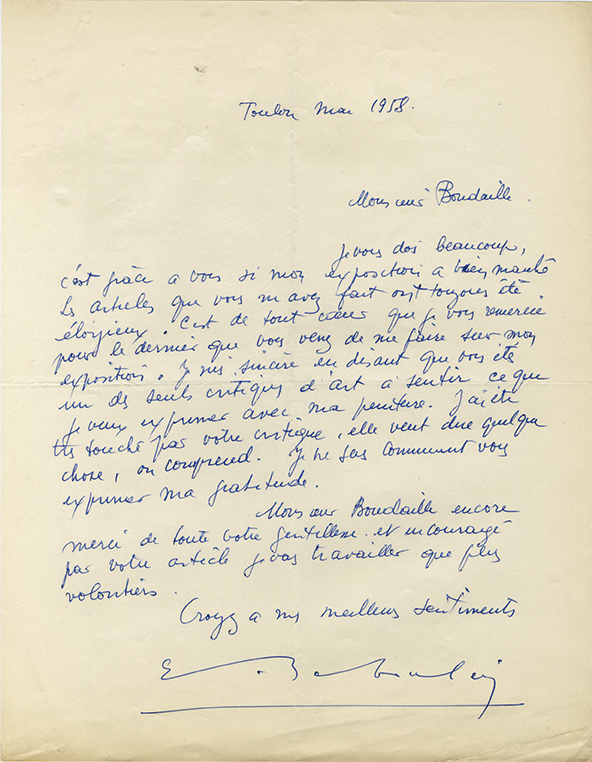 Toulon Mai 1958.
Monsieur Boudaille.
Je vous dois beaucoup,
c'est grâce a vous si mon exposition a bien marché
Les articles que vous m avez fait ont toujours été
élogieux. C'est de tout cœur que je vous remercie
pour le dernier que vous venez de me faire sur mon
exposition. Je suis sincère en disant que vous ete
un des seuls critiques d'art a sentir ce que
je veux exprimer avec ma peinture. J'ai été
très touché par votre critique, elle veut dire quelque
chose, on comprend. Je ne sais comment vous
exprimer ma gratitude.
Monsieur Boudaille encore
merci de toute votre gentillesse et encouragé
par votre article je vais travailler que plus
volontiers.
Croyez a mes meilleurs sentiments
E. Baboulin